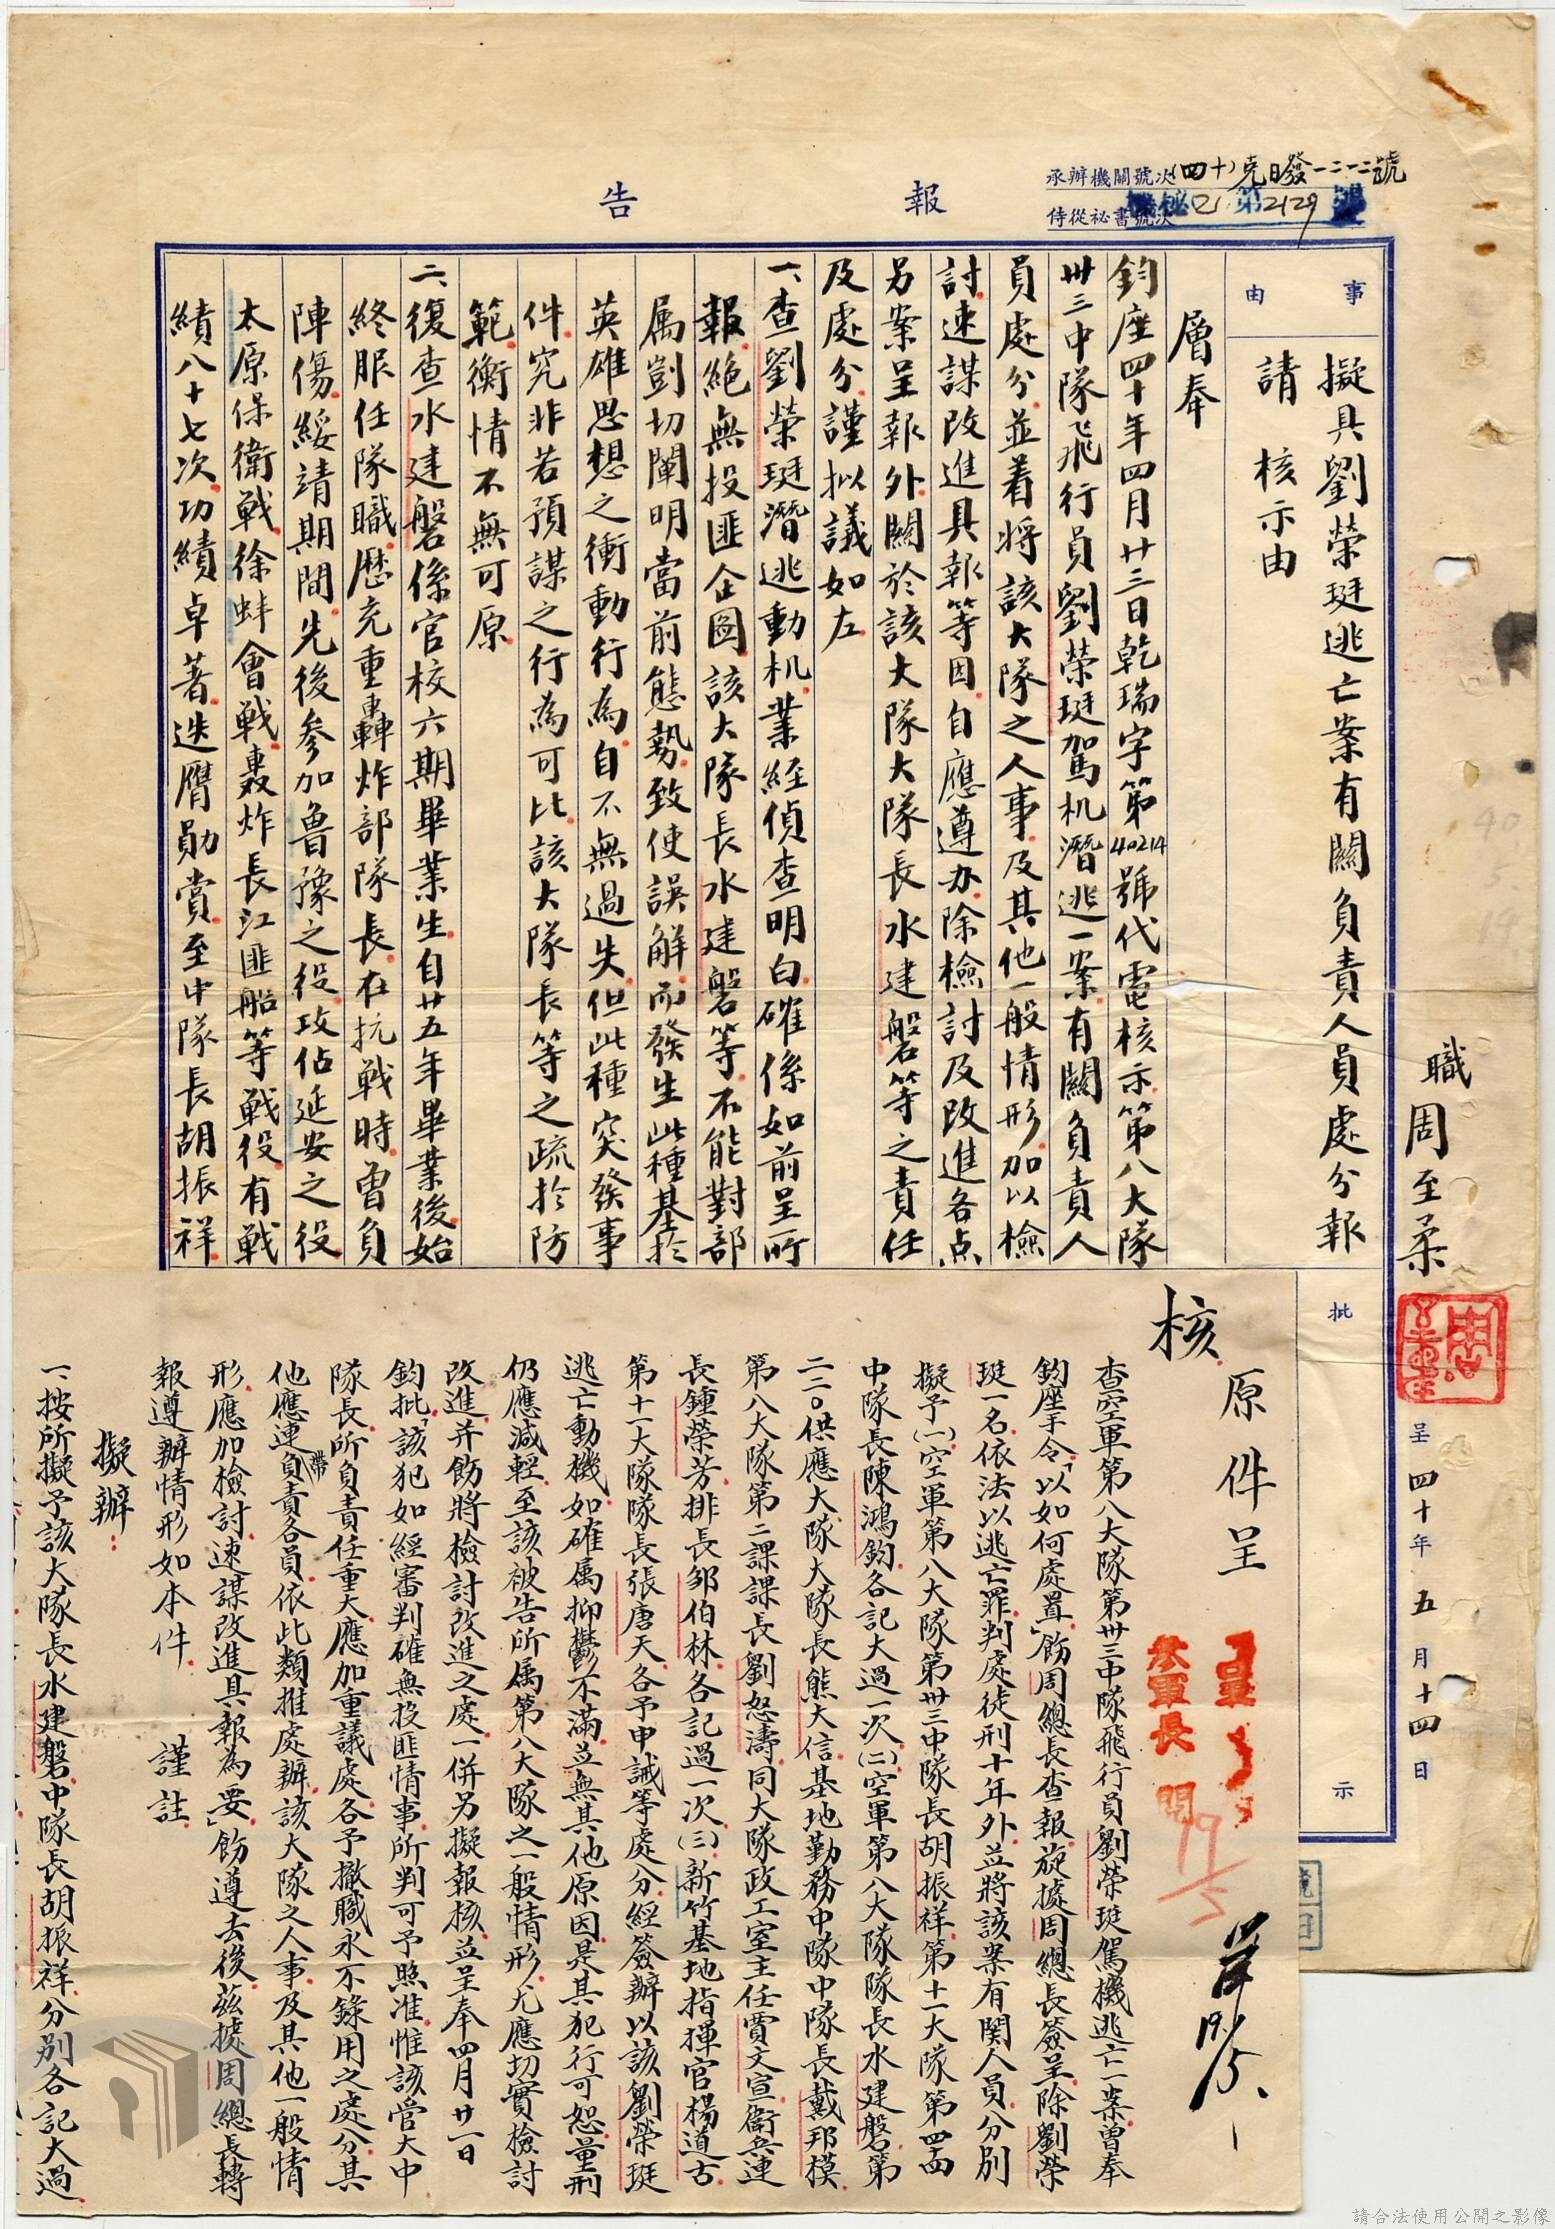 報告
承辦機關號次(四十)克日發一二一二號
侍從祕書號次機秘(乙)第2129號
事由
擬具劉榮珽逃亡案有關負責人員處分報
請 核示由
職周至柔
呈四十年五月十四日
批示
層奉
鈞座四十年四月廿三日乾瑞字第40214號代電核示第八大隊
卅三中隊飛行員劉榮珽駕机潛逃一案有關負責人
員處分並着將該大隊之人事及其他一般情形加以檢
討速謀改進具報等因自應遵办除檢討及改進各点
另案呈報外關於該大隊大隊長水建磐等之責任
及處分謹拟議如左
一、查劉榮珽潛逃動机業經偵查明白確係如前呈所
報絕無投匪企圖該大隊長水建磐等不能對部
属剴切闡明當前態勢致使誤解而發生此種基於
英雄思想之衝動行為自不無過失但此種突發事
件究非若預謀之行為可比該大隊長等之疏於防
範衡情不無可原
二、復查水建磐係官校六期畢業生自廿五年畢業後始
終服任隊職歷充重轟炸部隊長在抗戰時曾負
陣傷綏靖期間先後參加魯豫之役攻佔延安之役
太原保衛戰徐蚌會戰轟炸長江匪船等戰役有戰
績八十七次功績卓著迭膺勛賞至中隊長胡振祥
原件呈
核
參軍長
19/5
19/5
查空軍第八大隊第卅三中隊飛行員劉榮珽駕機逃亡一案曾奉
鈞座手令「以如何處置」飭周總長查報旋據周總長簽呈除劉榮
珽一名依法以逃亡罪判處徒刑十年外並將該案有関人員分別
擬予(一)空軍第八大隊第卅三中隊長胡振祥第十一大隊第四四
中隊長陳鴻鈞各記大過一次(二)空軍第八大隊隊長水建磐第
二二〇供應大隊大隊長熊大信基地勤務中隊中隊長戴邦模
第八大隊第二課課長劉恕濤同大隊政工室主任賈文宣衛兵連
長鍾榮芳排長邹伯林各記過一次(三)新竹基地指揮官楊道古
第十一大隊隊長張唐天各予申誡等處分經簽辦以該劉榮珽
逃亡動機如確属抑鬱不滿並無其他原因是其犯行可恕量刑
仍應減輕至該被告所属第八大隊之一般情形尤應切實檢討
改進并飭將檢討改進之處一併另擬報核並呈奉四月廿一日
鈞批「該犯如經審判確無投匪情事所判可予照准惟該管大中
隊長所負責任重大應加重議處各予撤職永不錄用之處分其
他應連帶負責各員依此類推處辦該大隊之人事及其他一般情
形應加檢討速謀改進具報為要」飭遵去後茲據周總長轉
報遵辦情形如本件 謹註
擬辦：
一、按所擬予該大隊長水建磐中隊長胡振祥分別各記大過
請合法使用公開之影像